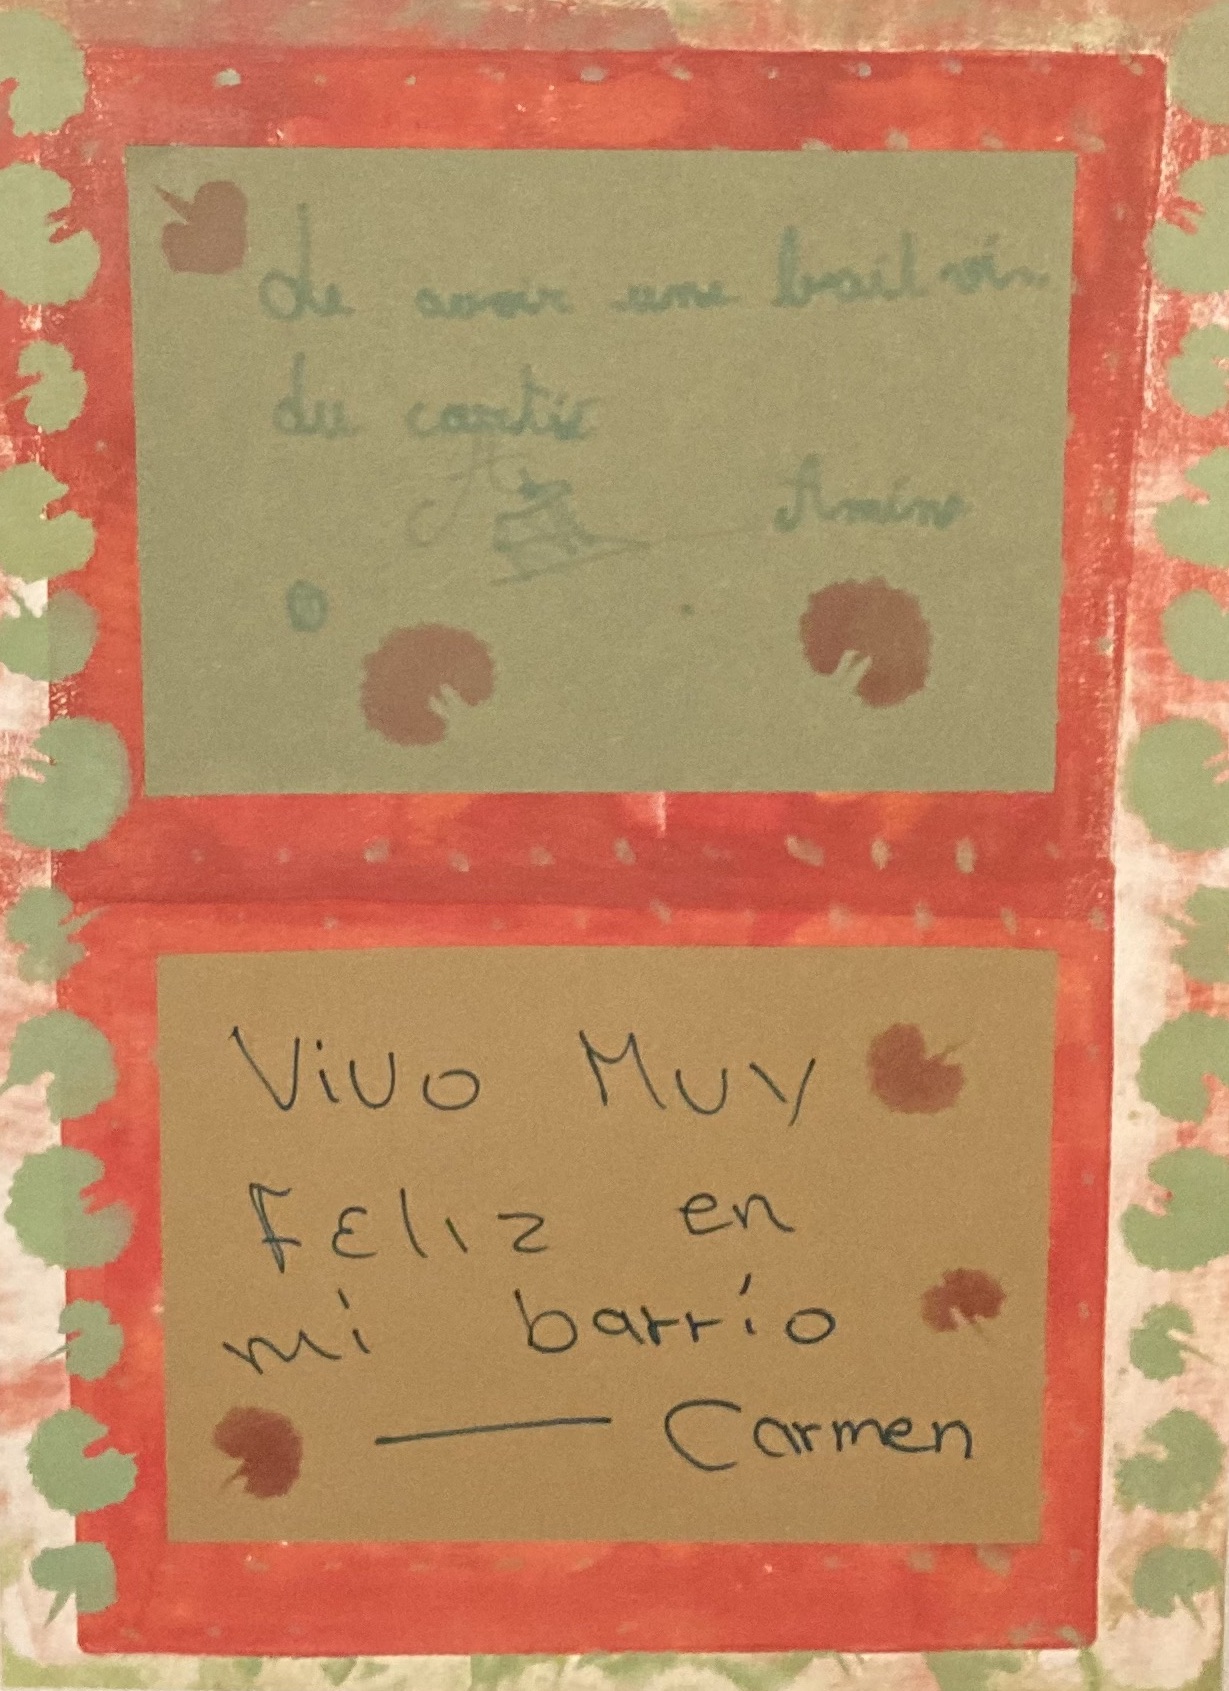 de avoir une
du cartie
Amine
Vivo Muy
Feliz en
mi barrio
— Carmen